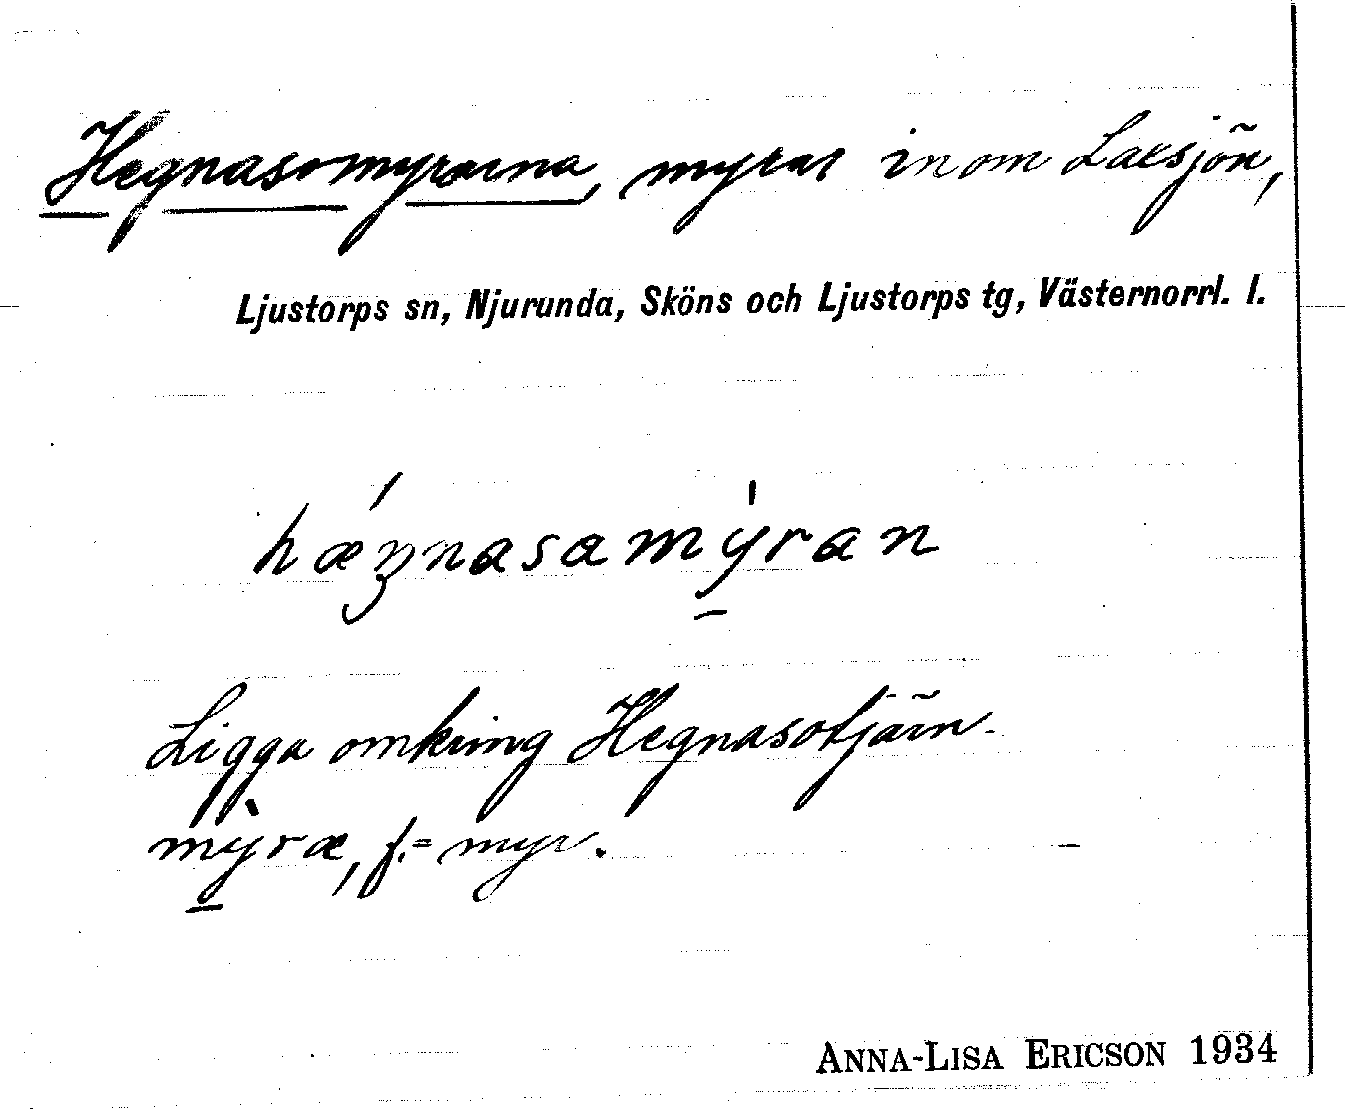 Hegnasomyrarna, myrar inom Laxsjön,
Ljustorps sn, Njurunda, Sköns och Ljustorps tg, Västernorrl. l.
hǽŋnasamy̱̍ran
Ligga omkring Hegnasotjärn.
mỳ̱ræ, f. = myr.
ANNA-LISA ERICSON 1934